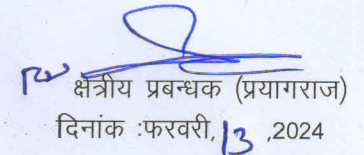 क्षेत्रीय प्रबन्धक (प्रयागराज)
दिनांक :फरवरी, 13 ,2024